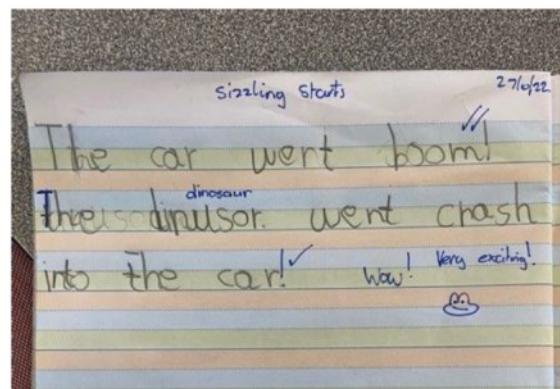 Sizzling Starts 27/10/22
The car went boom!
dinosaur
The dinusor. went crash
into the car! Wow! Very exciting!